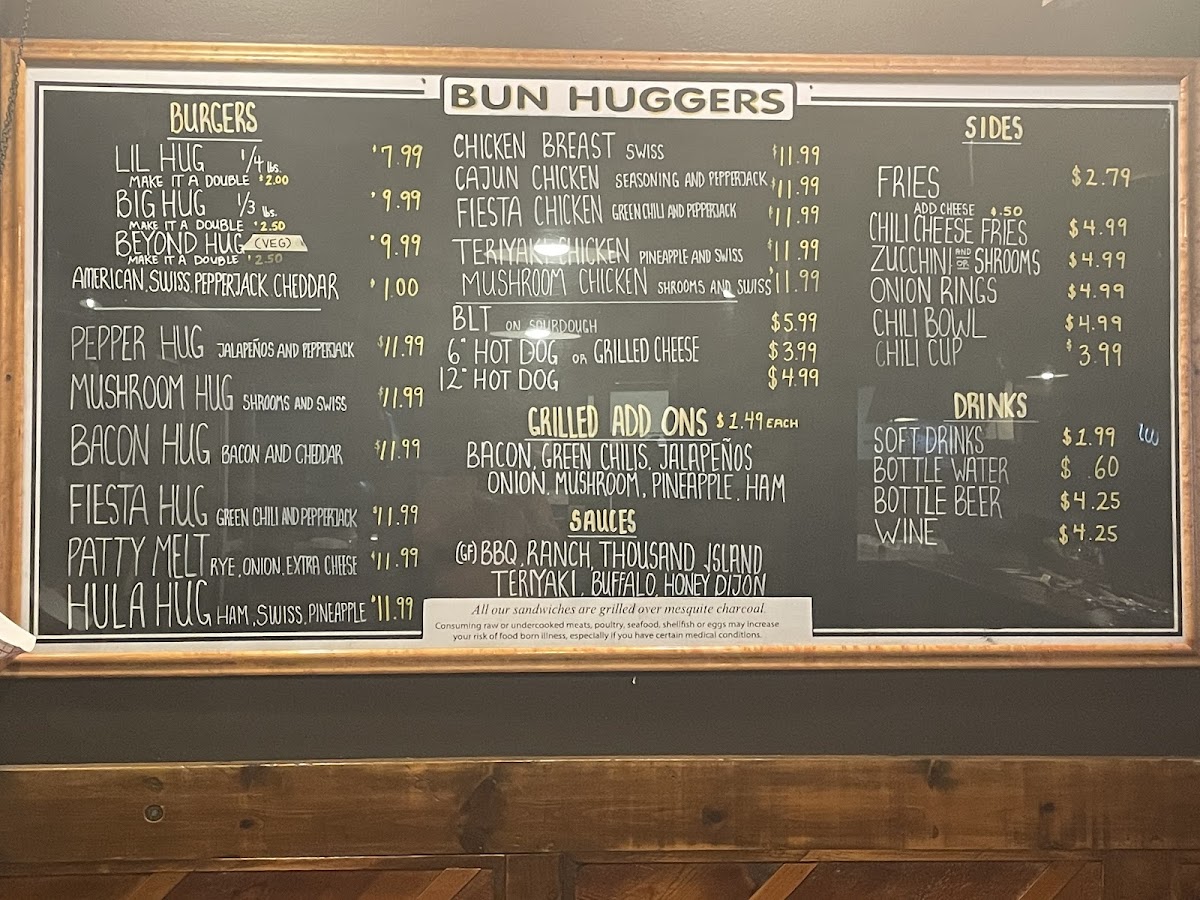 BUN HUGGERS
BURGERS
LIL HUG 1/4 lbs. $7.99
MAKE IT A DOUBLE $2.00
BIG HUG 1/3 lbs. $9.99
MAKE IT A DOUBLE $2.50
BEYOND HUG (VEG) $9.99
MAKE IT A DOUBLE $2.50
AMERICAN, SWISS, PEPPERJACK, CHEDDAR $1.00
PEPPER HUG JALAPEÑOS AND PEPPERJACK $11.99
MUSHROOM HUG SHROOMS AND SWISS $11.99
BACON HUG BACON AND CHEDDAR $11.99
FIESTA HUG GREEN CHILI AND PEPPERJACK $11.99
PATTY MELT RYE, ONION, EXTRA CHEESE $11.99
HULA HUG HAM, SWISS, PINEAPPLE $11.99
CHICKEN BREAST SWISS $11.99
CAJUN CHICKEN SEASONING AND PEPPERJACK $11.99
FIESTA CHICKEN GREEN CHILI AND PEPPERJACK $11.99
TERIYAKI CHICKEN PINEAPPLE AND SWISS $11.99
MUSHROOM CHICKEN SHROOMS AND SWISS $11.99
BLT ON SOURDOUGH $5.99
6" HOT DOG OR GRILLED CHEESE $3.99
12" HOT DOG $4.99
GRILLED ADD ONS $1.49 EACH
BACON, GREEN CHILIS, JALAPEÑOS
ONION, MUSHROOM, PINEAPPLE, HAM
SAUCES
(GF) BBQ, RANCH, THOUSAND ISLAND
TERYAKI, BUFFALO, HONEY DIJON
All our sandwiches are grilled over mesquite charcoal.
Consuming raw or undercooked meats, poultry, seafood, shellfish or eggs may increase
your risk of food born illness, especially if you have certain medical conditions.
SIDES
FRIES $2.79
ADD CHEESE $.50
CHILI CHEESE FRIES $4.99
ZUCCHINI AND OR SHROOMS $4.99
ONION RINGS $4.99
CHILI BOWL $4.99
CHILI CUP $3.99
DRINKS
SOFT DRINKS $1.99
BOTTLE WATER $ .60
BOTTLE BEER $4.25
WINE $4.25